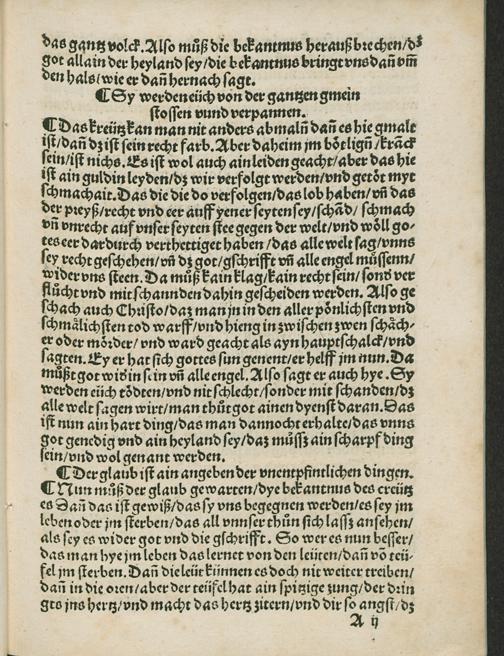 das gantz volck. Also můß die bekantnus herauß brechen/dz
got allain der heyland sey/die bekantnus bringt vns dañ vm̃
den hals/wie er dañ hernach sagt.
¶ Sy werden eüch von der gantzen gmein
stossen vund verpannen.
¶ Das kreütz kan man nit anders abmaln̄ dañ es hie gmalt
ist/dañ dz ist sein recht farb. Aber daheim jm bötlign̄/kranck
sein/ist nichs. Es ist wol auch ain leiden geacht/aber das hie
ist ain guldin leyden/dz wir verfolgt werden/vnd getöt myt
schmachait. Das die die do verfolgen/das lob haben/vñ das
der preyß/recht vnd eer auff yener seyten sey/schād/ schmach
vñ vnrecht auf vnser seyten stee gegen der welt/vnd wöll go-
tes eer dardurch verthettiget haben/das alle welt sag/vnns
sey recht geschehen/vñ dz got/gschrifft vñ alle engel müssenn/
wider vns steen. Da můß kain klag/kain recht sein/sonđ ver
flůcht vnd mit schannden dahin gescheiden werden. Also ge
schach auch Christo/daz man jn in den aller pönlichsten vnd
schmälichsten tod warff/vnd hieng in zwischen zwen schäch-
er oder mörder/vnd ward geacht als ayn hauptschalck/vnd
sagten. Ey er hat sich gottes sun genent/er helff jm nun. Da
můßt got widɔ in sein vñ alle engel. Also sagt er auch hye. Sy
werden eüch tödten/vnd nit schlecht/sonder mit schanden/dz
alle welt sagen wirt/man thůt got ainen dyenst daran. Das
ist nun ain hart ding/das man dannocht erhalte/das vnns
got genedig vnd ain heyland sey/daz můssz ain scharpf ding
sein/vnd wol genant werden.
¶ Der glaub ist ain angeben der vnentpfintlichen dingen.
¶ Nun můß der glaub gewarten/dye bekantnus des creütz
es Dañ das ist gewiß/das sy vns begegnen werden/es sey jm
leben oder jm sterben/das all vnnser thůn sich lassz ansehen/
als sey es wider got vnd die gschrifft. So wer es nun besser/
das man hye jm leben das lernet von den leüten/dañ vō teü-
fel jm sterben. Dañ die leüt künnen es doch nit weiter treiben/
dañ in die oren/aber der teüfel hat ain spitzige zung/der drin
gts jns hertz/vnd macht das hertz zitern/vnd dir so angst/dz
A ij